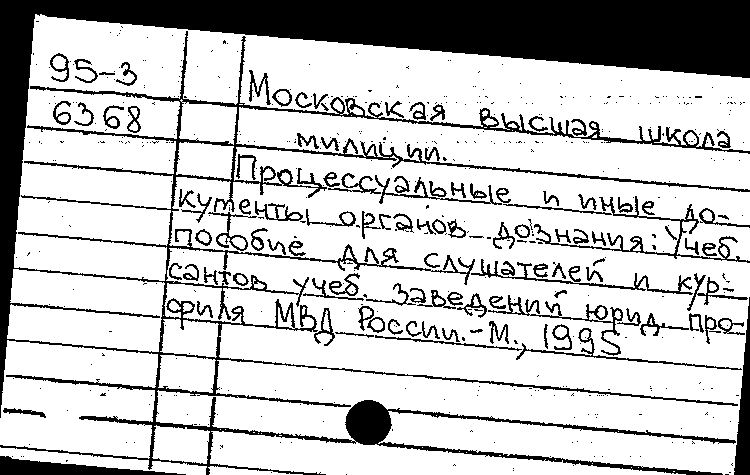 95-3
6368
Московская высшая школа
милиции.
Процессуальные и иные до-
кументы органов дознания: Учеб.
пособие для слушателей и кур-
сантов учеб. заведений юрид. про-
филя МВД России.-М., 1995